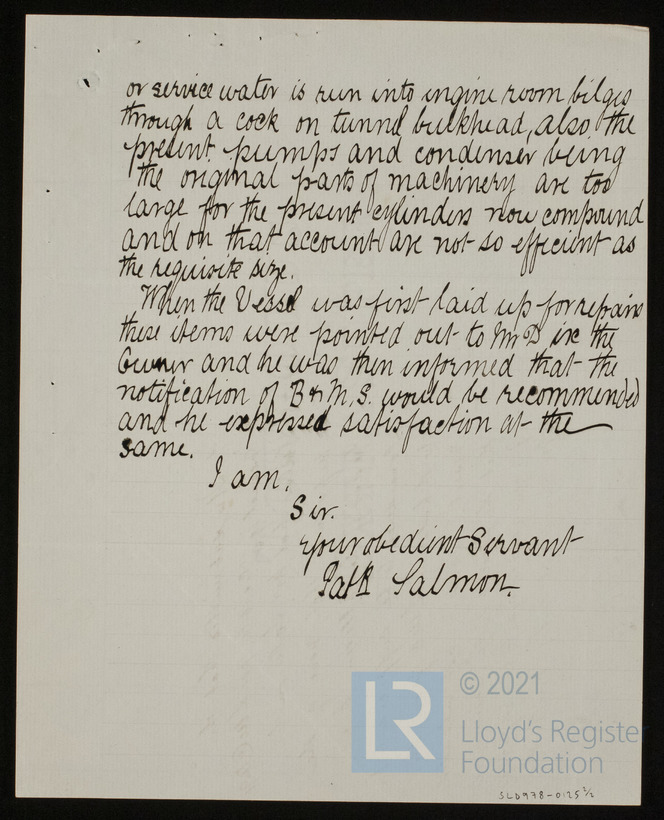 or service water is run into engine room bilges
through a cock on tunnel bulkhead, also the
present pumps and condenser being
the original parts of machinery are too
large for the present cylinders now compound
and on that account are not so efficient as
the requisite size.
When the Vessel was first laid up for repairs
these items were pointed out to Mr the
Owner and he was then informed that the
notification of B & M. S. would be recommended
and he expressed satisfaction at the
same.
I am.
Sir.
your obedient Servant
Patk Salmon.
LR
© 2021
Lloyd's Register
Foundation
SLD978-0125 2/2